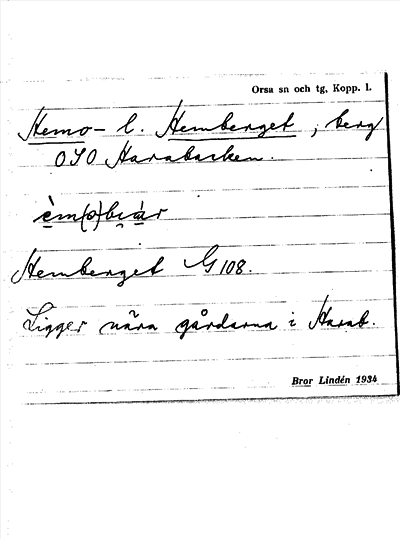 Orsa sn och tg, Kopp. l.
Hemo- l. Hemberget, berg
OSO Harabacken.
èm(o)bɪ̯ár
Hemberget G 108.
Ligger nära gårdarna i Harab.
Bror Lindén 1934